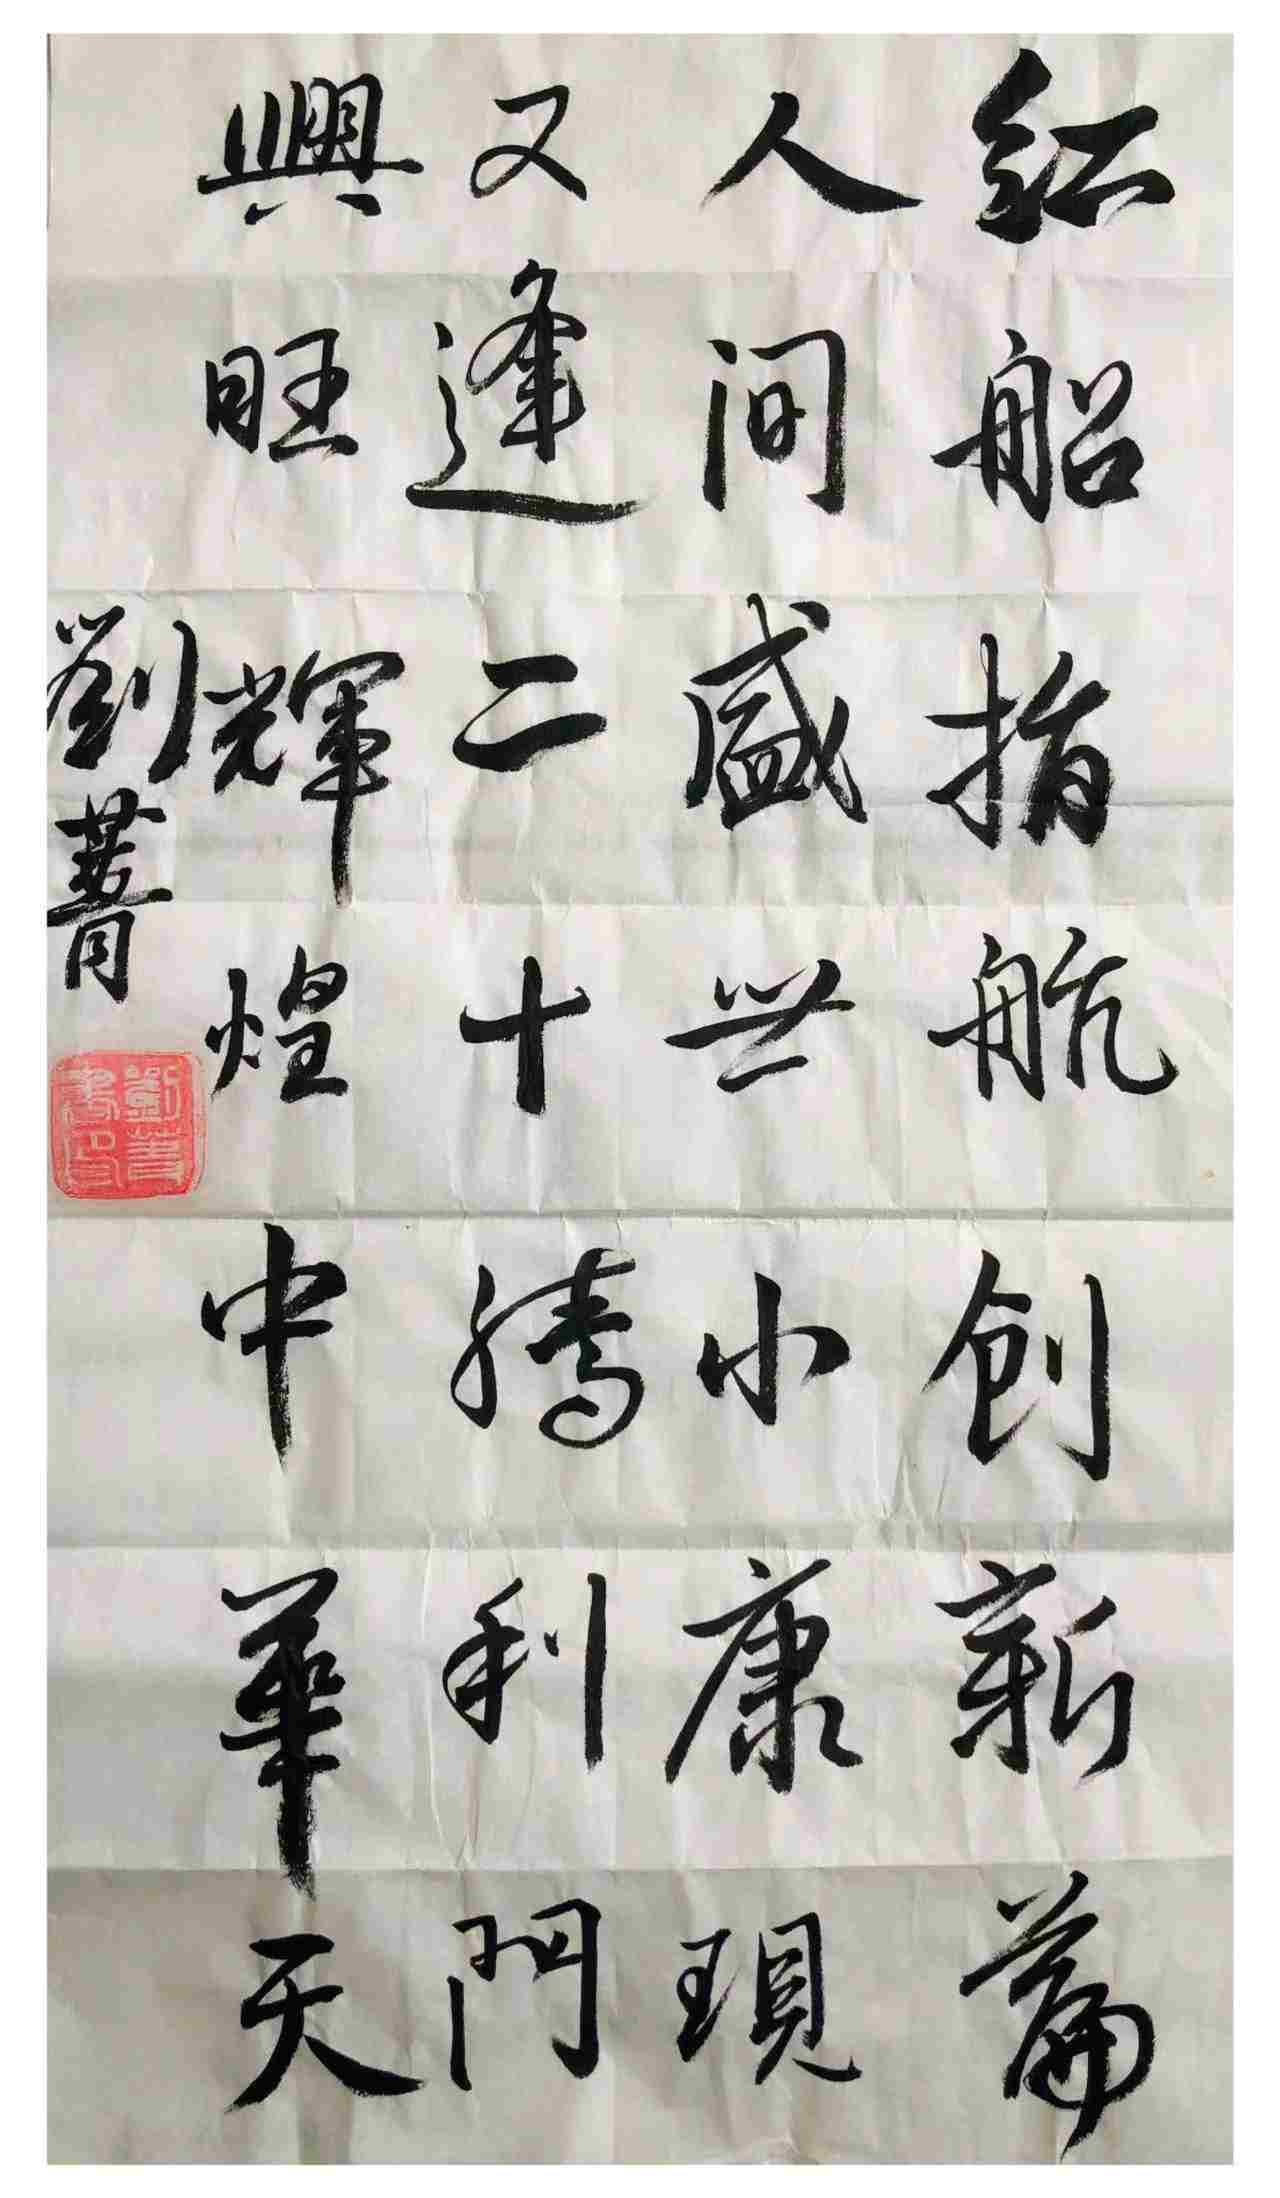 紅船指航創新篇
人间盛世小康現
又逢二十勝利門
興旺輝煌中華天
劉菁
劉菁書印